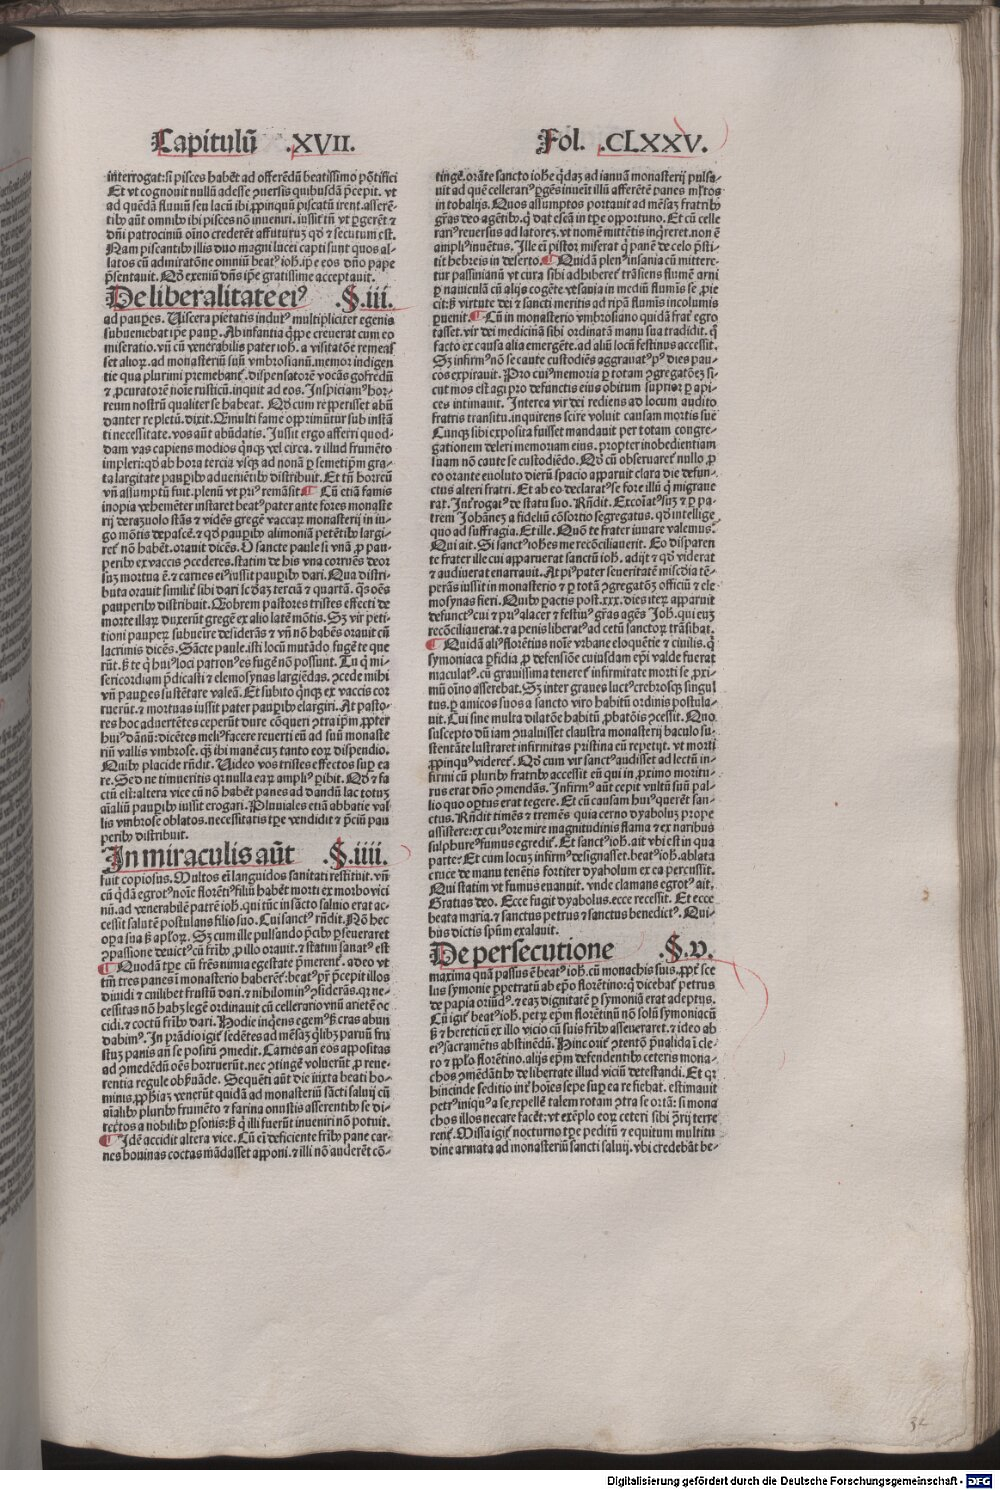 Capitulū .XVII.
Fol. .CLXXV.
interrogat: si pisces habēt ad offerēdū beatissimo pōtifici
Et vt cognouit nullū adesse ꝯuersis quibusdā p̄cepit. vt
ad quēdā fluuiū seu lacū ibi ꝓpinquū piscatū irent. asserē-
tibꝰ aūt omnibꝰ ibi pisces nō inueniri. iussit tn̄ vt ꝑgerēt ⁊
dn̄i patrociniū oīno crederēt affuturuꝫ qđ ⁊ secutum est.
Nam piscantibꝰ illis duo magni lucei capti sunt quos al-
latos cū admiratōne omniū beatꝰ ioħ. ip̄e eos dn̄o pape
p̄sentauit. Qđ exeniū dn̄s ip̄e gratissime acceptauit.
De liberalitate eiꝰ .§.iii.
ad pauꝑes. Uiscera pietatis indutꝰ multipliciter egenis
subueniebat ip̄e pauꝑ. Ab infantia q̄ꝑpe creuerat cum eo
miseratio. vn̄ cū venerabilis pater ioħ. a visitatōe remeas
set alioꝝ. ad monasteriū suū vmbrosianū. memor indigen
tie qua plurimi premebant̄. dispensatorē vocās gofredū
⁊ ꝓcuratorē noīe rusticū. inquit ad eos. Inspiciamꝰ hor-
reum nostrū qualiter se habeat. Qđ cum reꝑperisset abū
danter repletū. dixit. Multi fame opprimūtur sub instā
ti necessitate. vos aūt abūdatis. Jussit ergo afferri quod-
dam vas capiens modios q̄nqꝫ vel circa. ⁊ illud frumēto
impleri: qđ ab hora tercia vsqꝫ ad nonā ꝑ semetip̄m gra-
ta largitate pauꝑibꝰ adueniētibꝰ distribuit. Et tn̄ horreū
vn̄ assumptū fuit. plenū vt priꝰ remāsit ¶ Cū etiā famis
inopia vehemēter instaret beatꝰ pater ante fores monaste
rij derazuolo stās ⁊ vidēs gregē vaccaꝝ monasterij in iu-
go mōtis depascē. ⁊ qđ pauꝑibꝰ alimoniā petētibꝰ largi-
ret̄ nō habēt. orauit dicēs. O sancte paule si vnā ꝓ pau-
ꝑeribꝰ ex vaccis ꝯcederes. statim de his vna corruēs deor
suꝫ mortua ē. ⁊ carnes eiꝰ iussit pauꝑibꝰ dari. Qua distri-
buta orauit similiť sibi dari secūdaꝫ terciā ⁊ quartā. q̄s oēs
pauperibꝰ distribuit. Quobrem pastores tristes effecti de
morte illaꝝ duxerūt gregē ex alio latē mōtis. Sꝫ vir peti-
tioni pauperꝝ subueire desiderās ⁊ vn̄ nō habēs orauit cū
lacrimis dicēs. Sācte paule. isti locū mutādo. fugē te que
rūt. ß te q̄ huiꝰ loci patronꝰ es fugē nō possunt. Tu q̄ mi-
sericordiam p̄dicasti ⁊ elemosynas largiēdas. ꝯcede mihi
vn̄ pauꝑes sustētare valeā. Et subito q̄nqꝫ ex vaccis cor
ruerūt. ⁊ mortuas iussit pater pauꝑibꝰ elargiri. At pasto-
res hoc aduertētes ceperūt dure cōqueri ꝯtra ip̄m. ꝓpter
huiꝰ dānū: dicētes meliꝰ facere reuerti eū ad suū monaste
riū vallis vmbrose. qꝫ ibi manē cuꝫ tanto eoꝝ dispendio.
Quibꝰ placide rn̄dit. Uideo vos tristes effectos suꝑ ea
re. Sed ne timueritis qꝛ nulla eaꝝ ampliꝰ ꝑibit. Qđ ⁊ fa
ctū est: altera vice cū nō habēt panes ad dandū lac totuꝫ
aīaliū pauꝑibꝰ iussit erogari. Pluuiales etiā abbatie val
lis vmbrose oblatos. necessitatis tꝑe vendidit ⁊ p̄ciū pau
peribꝰ distribuit.
In miraculis aūt .§.iiii.
fuit copiosus. Multos em̄ languidos sanitati restituit. vn̄
cū q̄dā egrotꝰ noīe florētiꝰ filiū habēt morti ex morbo vici
nū. ad venerabilē patrē ioħ. qui tūc in sācto saluio erat ac-
cessit salutē postulans filio suo. Cui sanctꝰ rn̄dit. Nō hec
oꝑa sua ß apl̄oꝝ. Sꝫ cum ille pulsando p̄cibꝰ ꝑseueraret
ꝯpassione deuictꝰ cū fr̄ibꝰ ꝓ illo orauit. ⁊ statim sanatꝰ est
¶ Quodā tꝑe cū fr̄es nimia egestate p̄merent̄. adeo vt
tm̄ tres panes ī monasterio haberēt: beatꝰ pr̄ p̄cepit illos
diuidi ⁊ cuilibet frustū dari. ⁊ nihilominꝰ ꝯsiderās. qꝛ ne-
cessitas nō habꝫ legē ordinauit cū cellerario vnū arietē oc
cidi. ⁊ coctū fr̄ibꝰ dari. Hodie inq̄ens egemꝰ ß cras abun
dabimꝰ. In prādio igiť sedētes ad mēsaꝫ q̄libꝫ paruū fru
stuꝫ panis añ se positū ꝯmedit. Carnes añ eos appositas
ad ꝯmedēdū oēs horruerūt. nec ꝯtingē voluerūt ꝓ reue-
rentia regule obßuāde. Sequēti aūt die iuxta beati ho-
minis. ꝓpħiaꝫ venerūt quidā ad monasteriū sācti saluij cū
aīalibꝰ pluribꝰ frumēto ⁊ farina onustis asserentibꝰ se di-
rectos a nobilibꝰ ꝑsonis: ß q̄ illi fuerūt inueniri nō potuit.
¶ Idē accidit altera vice. Cū em̄ deficiente fr̄ibꝰ pane car-
nes bouinas coctas mādasset apponi. ⁊ illi nō auderēt cō-
tingē. orāte sancto ioħe q̄daꝫ ad ianuā monasterij pulsa-
uit ad quē cellerariꝰ ꝑgēs inueīt illū afferētē panes ml̄tos
in tobalijs. Quos assumptos portauit ad mēsaꝫ fratribꝰ
gr̄as deo agētibꝰ. q̄ dat escā in tꝑe opportuno. Et cū celle
rariꝰ reuersus ad latoreꝫ. vt nomē mittētis inq̄reret. non ē
ampliꝰ inuētus. Ille em̄ pistor miserat q̄ panē de celo p̄sti-
tit hebreis in deserto. ¶ Quidā plenꝰ insania cū mittere-
tur passinianū vt cura sibi adhiberet̄ trāsiens flumē arni
ꝑ nauiculā cū alijs cogēte vesania in mediū flumīs se ꝓie
cit: ß virtute dei ⁊ sancti meritis ad ripā flumīs incolumis
ꝑuenit. ¶ Cū in monasterio vmbrosiano quidā frat̄ egro
tasset. vir dei medicinā sibi ordinatā manu sua tradidit. q̄
facto ex causa alia emergēte. ad aliū locū festinus accessit.
Sꝫ infirmꝰ nō se caute custodiēs aggrauatꝰ pꝰ dies pau-
cos expirauit. Pro cuiꝰ memoria ꝑ totam ꝯgregatōeꝫ si-
cut mos est agi pro defunctis eius obitum suprior ꝑ api-
ces intimauit. Interea vir dei rediens ad locum audito
fratris transitu. inquirens scire voluit causam mortis sue
Cunqꝫ sibi exposita fuisset mandauit per totam congre-
gationem deleri memoriam eius. propter inobedientiam
suam nō caute se custodiēdo. Qđ cū obseruaret̄ nullo ꝓ
eo orante euoluto dierū spacio apparuit clara die defun-
ctus alteri fratri. Et ab eo declaratꝰ se fore illū q̄ migraue
rat. Int̄rogatꝰ de statu suo. Rn̄dit. Excōīatꝰ suꝫ ⁊ ꝑ pa-
trem Johāneꝫ a fideliū cōsortio segregatus. qđ intellige
quo ad suffragia. Et ille. Quō te frater iuuare valemus.
Qui ait. Si sanctꝰ ioħes me recōciliauerit. Eo disparen
te frater ille cui apparuerat sanctū ioħ. adijt ⁊ qđ viderat
⁊ audiuerat enarrauit. At piꝰ pater seueritatē miscđia tē-
perās iussit in monasterio ⁊ ꝑ totā ꝯgregatōeꝫ officiū ⁊ ele
mosynas fieri. Quibꝰ ꝑactis post .xxx. dies iteꝝ apparuit
defunctꝰ cui ⁊ priꝰ alacer ⁊ festiuꝰ gr̄as agēs Joħ. qui euꝫ
recōciliauerat. ⁊ a penis liberatꝰ ad cetū sanctoꝝ trāsibat.
¶ Quidā aliꝰ florētius noīe vrbane eloquētie ⁊ ciuilis. q̄
symoniaca ꝑfidia ꝓ defensiōe cuiusdam ep̄i valde fuerat
maculatꝰ. cū grauissima teneret̄ infirmitate morti se ꝓxi-
mū oīno asserebat. Sꝫ inter graues luctꝰ crebrosqꝫ singul
tus. ꝑ amicos suos a sancto viro habitū ordinis postula-
uit. Cui sine multa dilatōe habitū ꝓbatōīs ꝯcessit. Quo
suscepto dū iam ꝯualuisset claustra monasterij baculo su-
stentāte lustraret infirmitas pristina eū repetijt. vt morti
ꝓpinqꝰ videret̄. Qđ cum vir sanctꝰ audisset ad lectū in-
firmi cū pluribꝰ fratribꝰ accessit eū qui in ꝓximo moritu-
rus erat dn̄o ꝯmendās. Infirmꝰ aūt cepit vultū suū pal-
lio quo oꝑtus erat tegere. Et cū causam huiꝰ quereret san-
ctus. Rn̄dit timēs ⁊ tremēs quia cerno dyaboluꝫ prope
assistere: ex cuiꝰ ore mire magnitudinis flama ⁊ ex naribus
sulphureꝰ fumus egredit̄. Et sanctꝰ ioħ. ait vbi est in qua
parte: Et cum locuꝫ infirmꝰ designasset. beatꝰ ioħ. ablata
cruce de manu tenētis fortiter dyabolum ex ea percussit.
Qui statim vt fumus euanuit. vnde clamans egrotꝰ ait.
Gratias deo. Ecce fugit dyabolus. ecce recessit. Et ecce
beata maria. ⁊ sanctus petrus ⁊ sanctus benedictꝰ. Qui-
bus dictis spūm exalauit.
De persecutione .§.v.
maxima quā passus ē beatꝰ ioħ. cū monachis suis. ꝓpť sce
lus symonie ꝑpetratū ab ep̄o florētino: q̄ dicebat̄ petrus
de papia oriūdꝰ. ⁊ eaꝫ dignitatē ꝑ symoniā erat adeptus.
Cū igiť beatꝰ ioħ. petꝝ ep̄m florētinū nō solū symoniacū
ß ⁊ hereticū ex illo vicio cū suis fr̄ibꝰ asseueraret. ⁊ ideo ab
eiꝰ sacramētis abstinēdū. Hinc oriť ꝯtentō p̄ualida ī cle-
ro ⁊ ppl̄o florētino. alijs ep̄m defendentibꝰ ceteris mona-
chos ꝯmēdātibꝰ de libertate illud viciū detestandi. Et qꝛ
hincinde seditio int̄ hoīes sepe suꝑ ea re fiebat. estimauit
petrꝰ iniquꝰ a se repellē talem rotam ꝯtra se ortā: si mona
chos illos necare facēt. vt exēplo eoꝝ ceteri sibi ꝯͣrij terre
rent̄. Missa igiť nocturno tꝑe peditū ⁊ equitum multitu
dine armata ad monasteriū sancti saluij. vbi credebāt be-
34
Digitalisierung gefördert durch die Deutsche Forschungsgemeinschaft - DFG